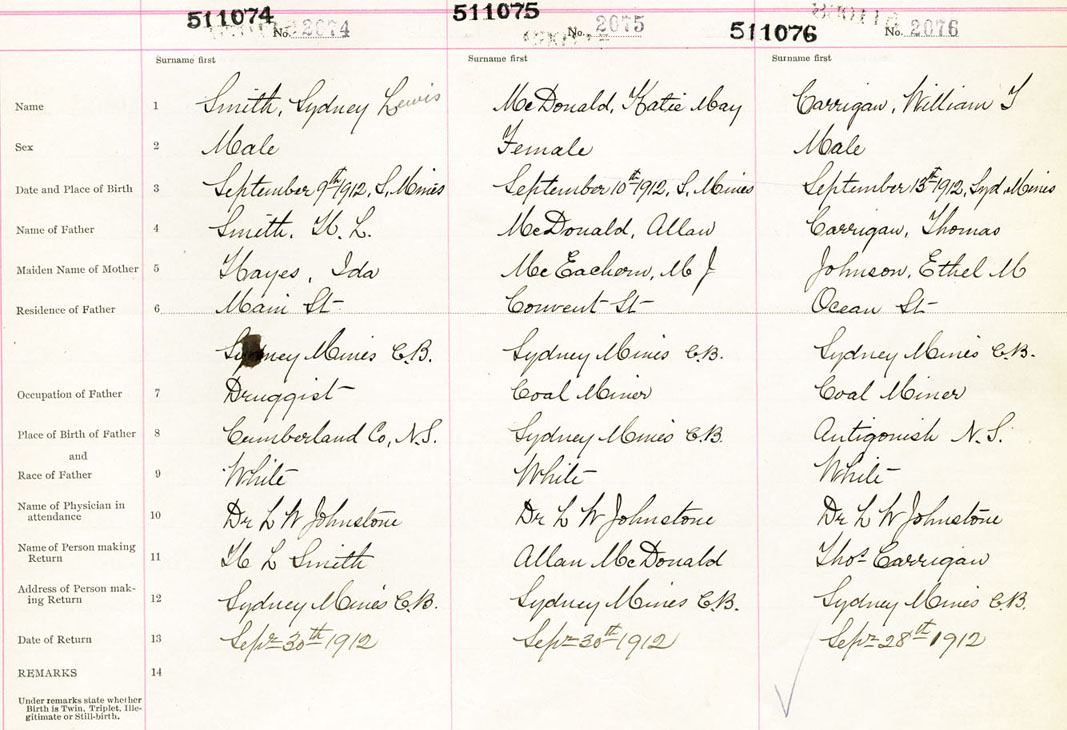 511074 No. 2074 511075 No. 2075 511076 No. 2076
Surname first Surname first Surname first
Name 1 Smith, Sydney Lewis McDonald, Katie May Carrigan, William J
Sex 2 Male Female Male
Date and Place of Birth 3 September 9th 1912, S. Mines September 10th 1912, S. Mines September 13th 1912, Syd Mines
Name of Father 4 Smith, H. L. McDonald, Allan Carrigan, Thomas
Maiden Name of Mother 5 Hayes, Ida McEachern, M J Johnson, Ethel M
Residence of Father 6 Main St Convent St Ocean St
Sydney Mines C.B. Sydney Mines C.B. Sydney Mines C.B.
Occupation of Father 7 Druggist Coal Miner Coal Miner
Place of Birth of Father 8 Cumberland Co, N.S. Sydney Mines C.B. Antigonish N.S.
and
Race of Father 9 White White White
Name of Physician in
attendance 10 Dr L W Johnstone Dr L W Johnstone Dr L W Johnstone
Name of Person making
Return 11 H L Smith Allan McDonald Thos Carrigan
Address of Person mak-
ing Return 12 Sydney Mines C.B. Sydney Mines C.B. Sydney Mines C.B.
Date of Return 13 Sepr 30th 1912 Sepr 30th 1912 Sepr 28th 1912
REMARKS 14
Under remarks state whether
Birth is Twin, Triplet, Ille-
gitimate or Still-birth.